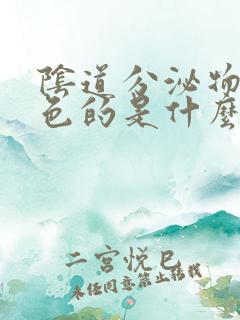 陰道分泌物
色的是什麼
二宮悅巳
未经同意禁止转载